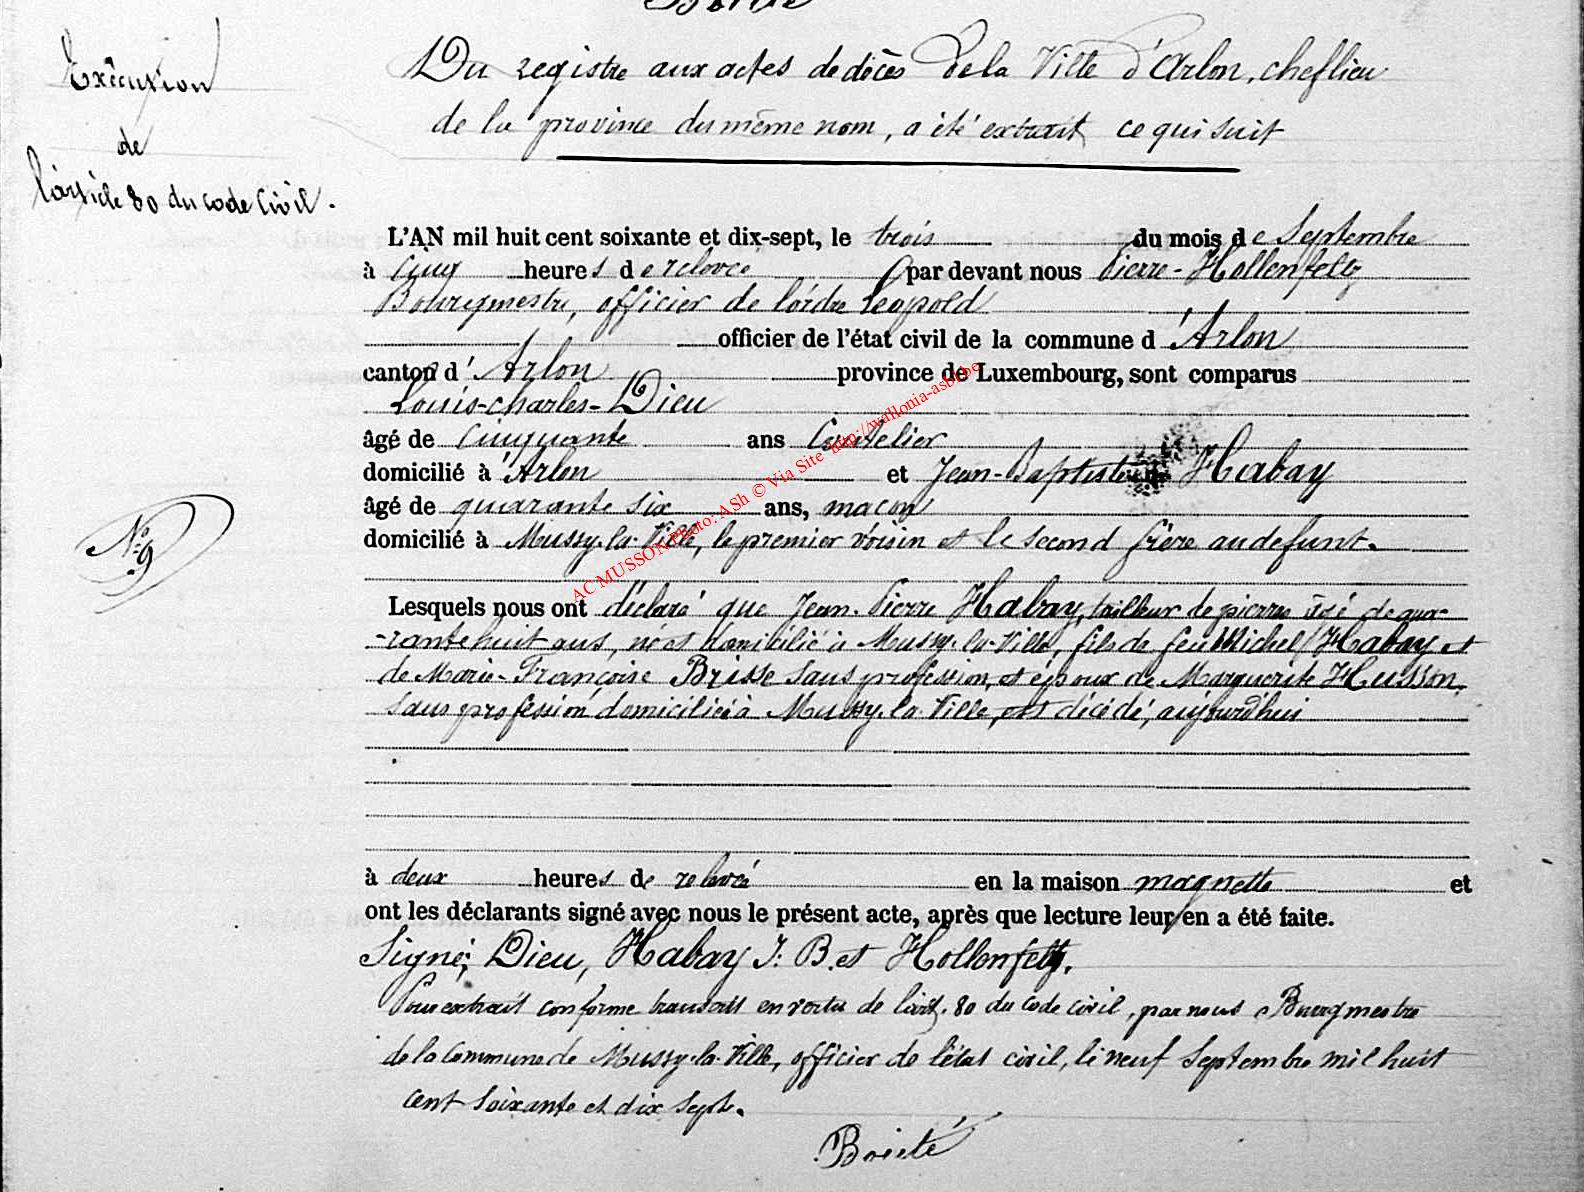 Exêcution
de
l'article 80 du code Civil.
Du registre aux actes de dècès de la Ville d'Arlon, cheflieu
de la province du même nom, a été extrait ce qui suit
L'AN mil huit cent soixante et dix-sept, le trois du mois de Septembre
à cinq heures de relevée par devant nous Pierre-Hollenfeltz
Bourgmestre, officier de l'ordre Léopold
officier de l'état civil de la commune d'Arlon
canton d'Arlon province de Luxembourg, sont comparus
Louis-charles-Dieu
âgé de cinquante ans Coutelier
domicilié à Arlon et Jean-Baptiste Habay
âgé de quarante six ans, maçon
domicilié à Mussy-la-Ville, le premier voisin et le second frère au defunt.
N° 9
Lesquels nous ont déclaré que Jean-Pierre Habay, tailleur de pierres âgé de qua-
-rante huit ans, né et domicilié à Mussy-la-Ville, fils de feu Michel Habay et
de Marie-Françoise Brisse sans profession, et époux de Marguerite Husson,
sans profession domiciliée à Mussy-la-Ville, est décédé, aujourd'hui
à deux heures de relevée en la maison magnette et
ont les déclarants signé avec nous le présent acte, après que lecture leur en a été faite.
Signé; Dieu, Habay J. B. et Hollenfeltz.
Pour extrait conforme transcrit en vertu de l'art. 80 du code civil, par nous Bourgmestre
de la Commune de Mussy-la-Ville, officier de l'état civil, le neuf Septembre mil huit
cent soixante et dix sept.
AC MUSSON Photo: ASh © Via Site http://wallonia-asbl.be